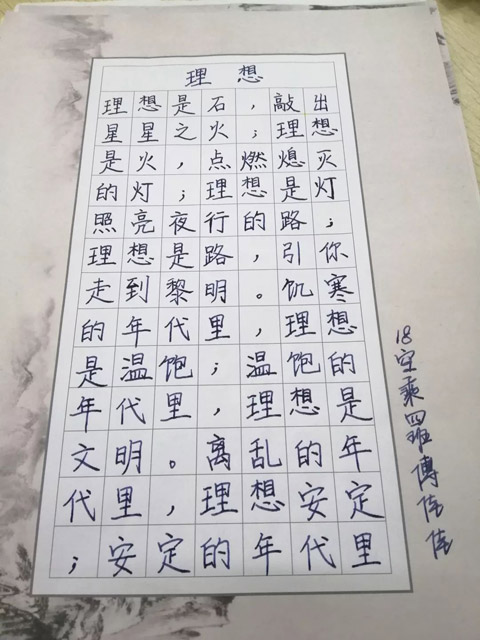 理想
理想是石，敲出
星星之火；理想
是火，点燃熄灭
的灯；理想是灯
照亮夜行的路；
理想是路，引你
走到黎明。饥寒
的年代里，理想
是温饱；温饱的
年代里，理想是
文明。离乱的年
代里，理想安定
；安定的年代里
18空乘四班傅佳佳